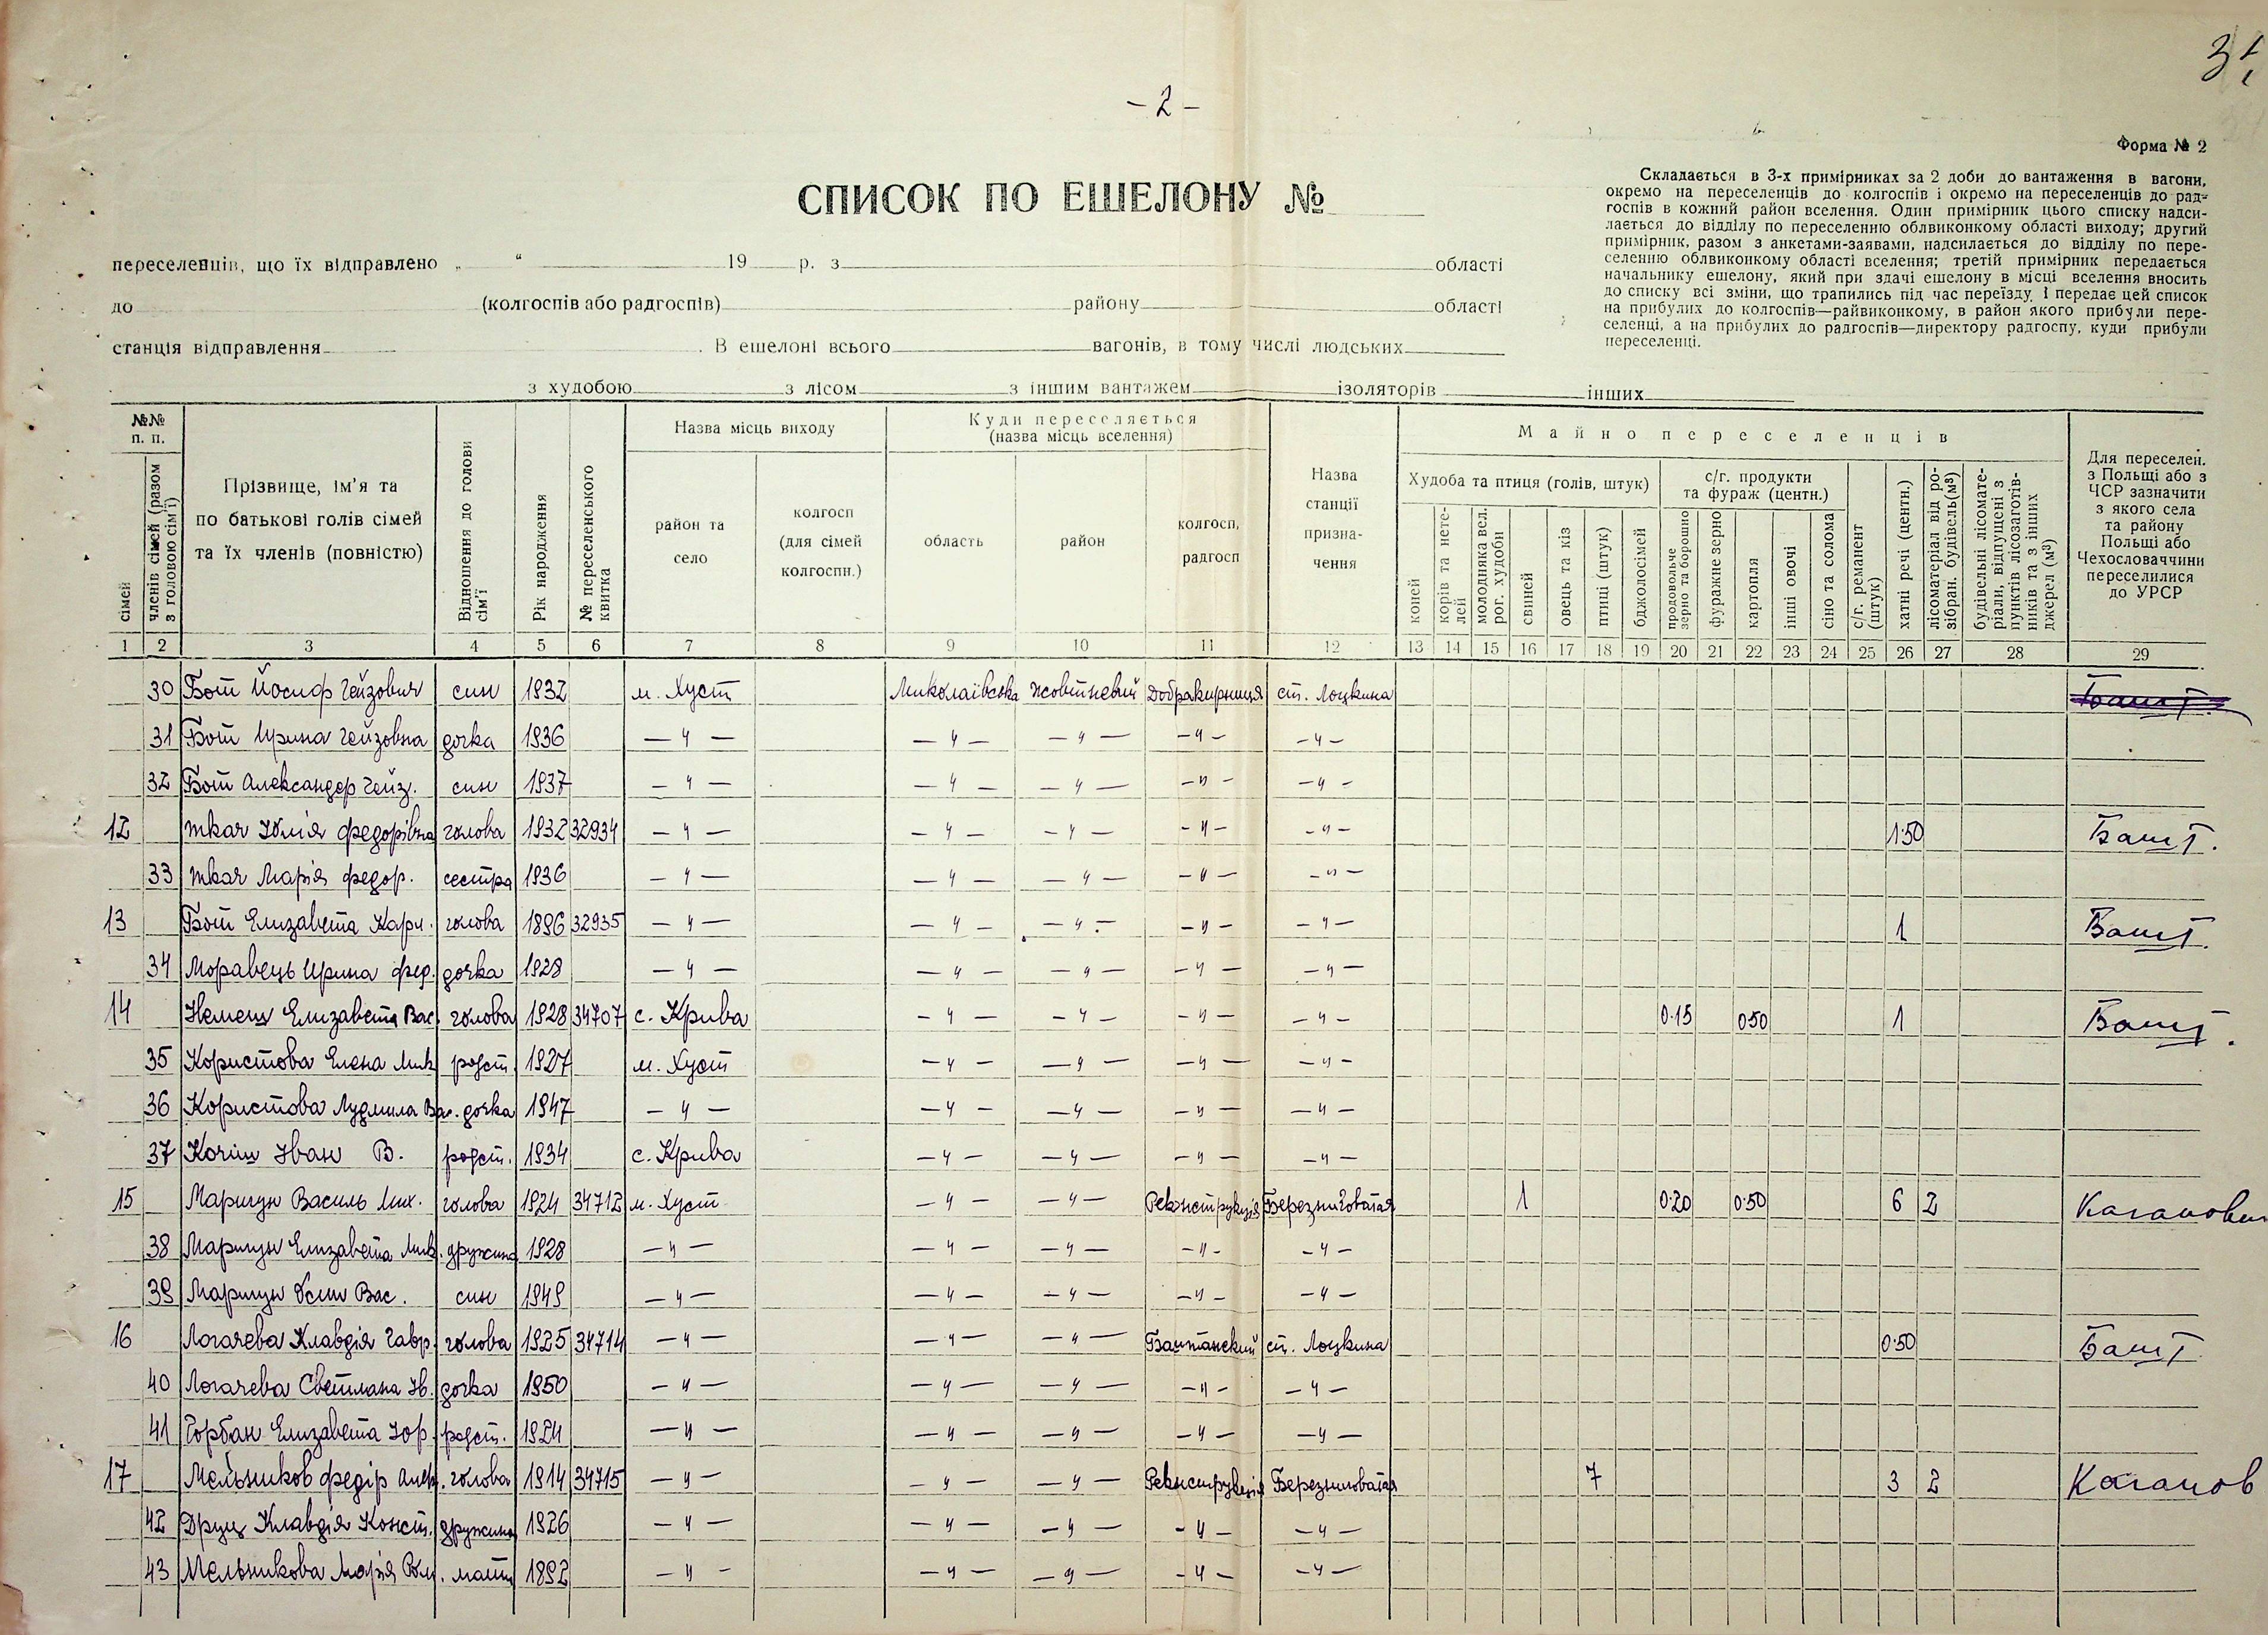 - 2 -
Форма № 2
СПИСОК ПО ЕШЕЛОНУ №
Складається в 3-х примірниках за 2 доби до вантаження в вагони,
окремо на переселенців до колгоспів і окремо на переселенців до рад-
госпів в кожний район вселення. Один примірник цього списку надси-
лається до відділу по переселенню облвиконкому області виходу; другий
примірник, разом з анкетами-заявами, надсилається до відділу по пере-
селенню облвиконкому області вселення; третій примірник передається
начальнику ешелону, який при здачі ешелону в місці вселення вносить
до списку всі зміни, що трапились під час переїзду і передає цей список
на прибулих до колгоспів—райвиконкому, в район якого прибули пере-
селенці, а на прибулих до радгоспів—директору радгоспу, куди прибули
переселенці.
переселенців, що їх відправлено „ “ 19 р. з області
до (колгоспів або радгоспів) району області
станція відправлення . В ешелоні всього вагонів, в тому числі людських
з худобою з лісом з іншим вантажем ізоляторів інших
№№ п. п.
сімей
членів сімей (разом з головою сім'ї)
Прізвище, ім'я та
по батькові голів сімей
та їх членів (повністю)
Відношення до голови сім'ї
Рік народження
№ переселенського квитка
Назва місць виходу
район та село
колгосп (для сімей колгоспн.)
Куди переселяється
(назва місць вселення)
область
район
колгосп, радгосп
Назва станції призна-чення
Майно переселенців
Худоба та птиця (голів, штук)
коней
корів та нете-лей
молодняка вел. рог. худоби
свиней
овець та кіз
птиці (штук)
бджолосімей
с/г. продукти та фураж (центн.)
продовольче зерно та борошно
фуражне зерно
картопля
інші овочі
сіно та солома
с/г. реманент (штук)
хатні речі (центн.)
лісоматеріал від ро-зібран. будівель (м³)
будівельні лісомате-ріали, відпущені з пунктів лісозаготів-ників та з інших джерел (м³)
Для переселен. з Польщі або з ЧСР зазначити з якого села та району Польщі або Чехословаччини переселилися до УРСР
1 2 3 4 5 6 7 8 9 10 11 12 13 14 15 16 17 18 19 20 21 22 23 24 25 26 27 28 29
30 Бот Йосиф Гейзович син 1932 м. Хуст Миколаївська Жовтневий Добра криниця ст. Лоцкина
31 Бот Ирина Гейзовна дочка 1936 — " — — " — — " — — " — — " —
32 Бот Александер Гейз. син 1937 — " — — " — — " — — " — — " —
12 Ткач Юлія Федорівна голова 1932 32934 — " — — " — — " — — " — — " — 1.50 Башт.
33 Ткач Марія Федор. сестра 1936 — " — — " — — " — — " — — " —
13 Бот Елизавета Карл. голова 1896 32935 — " — — " — — " — — " — — " — 1 Башт.
34 Моравець Ирина Фед. дочка 1928 — " — — " — — " — — " — — " —
14 Немеш Елизавета Вас. голова 1928 34707 с. Крива — " — — " — — " — — " — 0.15 0.50 1 Башт.
35 Користова Елена Мик родст. 1927 м. Хуст — " — — " — — " — — " —
36 Користова Лудмила Вас. дочка 1947 — " — — " — — " — — " — — " —
37 Кочіш Іван В. родст. 1934 с. Крива — " — — " — — " — — " —
15 Маргцун Василь Мих. голова 1924 34712 м. Хуст — " — — " — Реконструкція Березниговатая 1 0.20 0.50 6 2 Каганович
38 Елизавета Мик. дружина 1928 — " — — " — — " — — " — — " —
39 Вас. син 1949 — " — — " — — " — — " — — " —
16 Логачева Клавдія Гавр. голова 1925 34714 — " — — " — — " — Баштанский ст. Лоцкина 0.50 Башт
40 Логачева Светлана Ив. дочка 1950 — " — — " — — " — — " — — " —
41 Горбан Елизавета Юр. родст. 1924 — " — — " — — " — — " — — " —
17 Мельников Федір Алек. голова 1914 34715 — " — — " — — " — Реконструкція Березниговатая 7 3 2 Каганов
42 Друц Клавдія Конст. дружина 1926 — " — — " — — " — — " — — " —
43 Мельникова Марія мати 1892 — " — — " — — " — — " — — " —